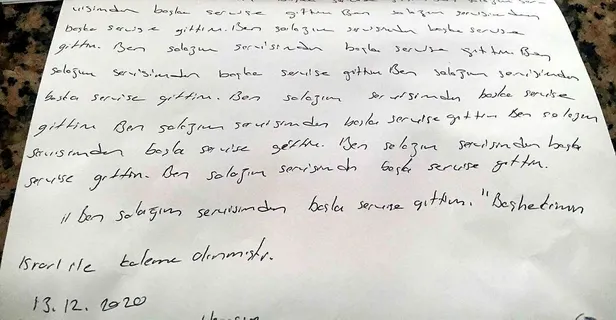 servisimden başka servise gittim Ben salağım servisimden
başka servise gittim. Ben salağım servisimden başka servise
gittim. Ben salağım servisimden başka servise gittim. Ben
salağım servisimden başka servise gittim Ben salağım servisimden
başka servise gittim. Ben salağım servisimden başka servise
gittim Ben salağım servisimden başka servise gittim Ben salağım
servisimden başka servise gittim. Ben salağım servisimden başka
servise gittim. Ben salağım servisimden başka servise gittim.
ben salağım servisimden başka servise gittim." Başhekimin
ısrarı ile kaleme alınmıştır.
13.12.2020